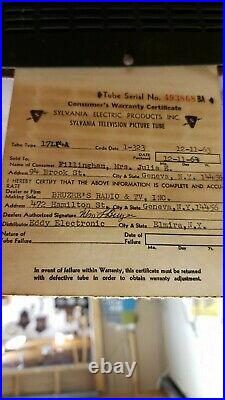 Tube Serial No. 493868 BA
Consumer's Warranty Certificate
SYLVANIA ELECTRIC PRODUCTS INC.
SYLVANIA TELEVISION PICTURE TUBE
Tube Type Code Date 1-3R3 12-11-63
Sold To: DATE Purchased 12-11-64
Name of Consumer Fillingham, Mrs. Julia E. Mo. Day Yr.
Address 94 Brook St. City & State Geneva, N.Y. 14456
I HEREBY CERTIFY THAT THE ABOVE INFORMATION IS COMPLETE AND ACCURATE
Dealer or Firm
Making Sale BRUZEE'S RADIO & TV, INC.
Address 472 Hamilton St. City & State Geneva, N.Y. 14456
Dealers Authorized Signature
Distributor Eddy Electronic City & State Elmira, N.Y.
Nature of Tube Failure Date of Tube Failure
Mo. Day Yr.
In event of failure within Warranty, this certificate must be returned
with defective tube in order to obtain warranty adjustment.